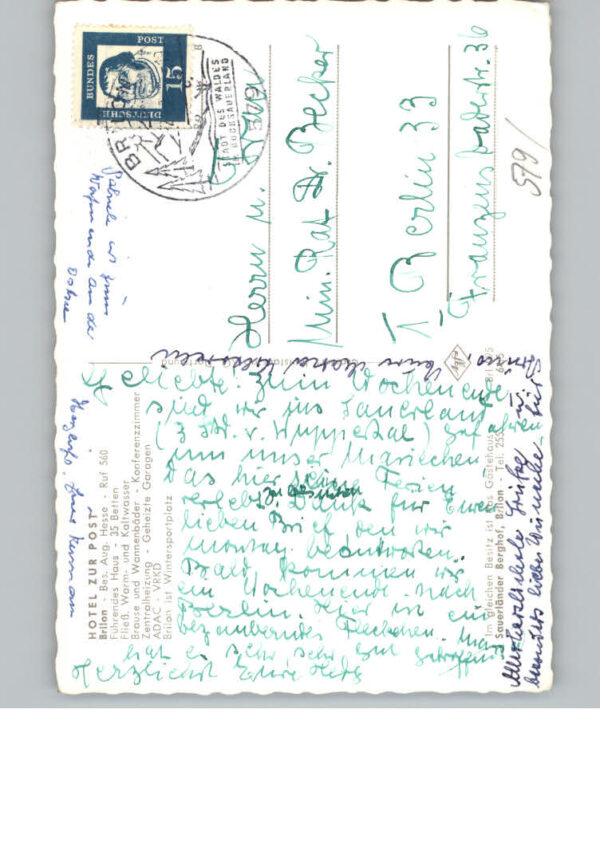 HOTEL ZUR POST
Brilon - Bes. Aug. Hesse - Ruf 560
Führendes Haus - 35 Betten
Fließ. Warm- und Kaltwasser
Brause und Wannenbäder - Konferenzzimmer
Zentralheizung - Geheizte Garagen
ADAC - VRKD
Brilon ist Wintersportplatz
Im gleichen Besitz ist das Gästehaus
Sauerländer Berghof, Brilon - Tel. 253
DEUTSCHE
BUNDES
POST
15
STADT DES WALDES
IM HOCHSAUERLAND
Herrn u.
Min. Rat Dr. Becker
1 Berlin 33
Franzensbaderstr. 36
579/
Liebe! Zum Wochenende
sind wir ins Sauerland
(3 Std. v. Wuppertal) gefahren
um unser Mariechen
das hier seine Ferien
verlebt zu besuchen. Dank für Euren
lieben Brief den wir
Montag beantworten.
Bald kommen wir
ein Wochenende nach
Berlin. Hier ist ein
bezauberndes Fleckchen.
hat es sehr, sehr gut getroffen
Herzlichst Eure
Allerherzlichste Grüße u.
liebe Wünsche für